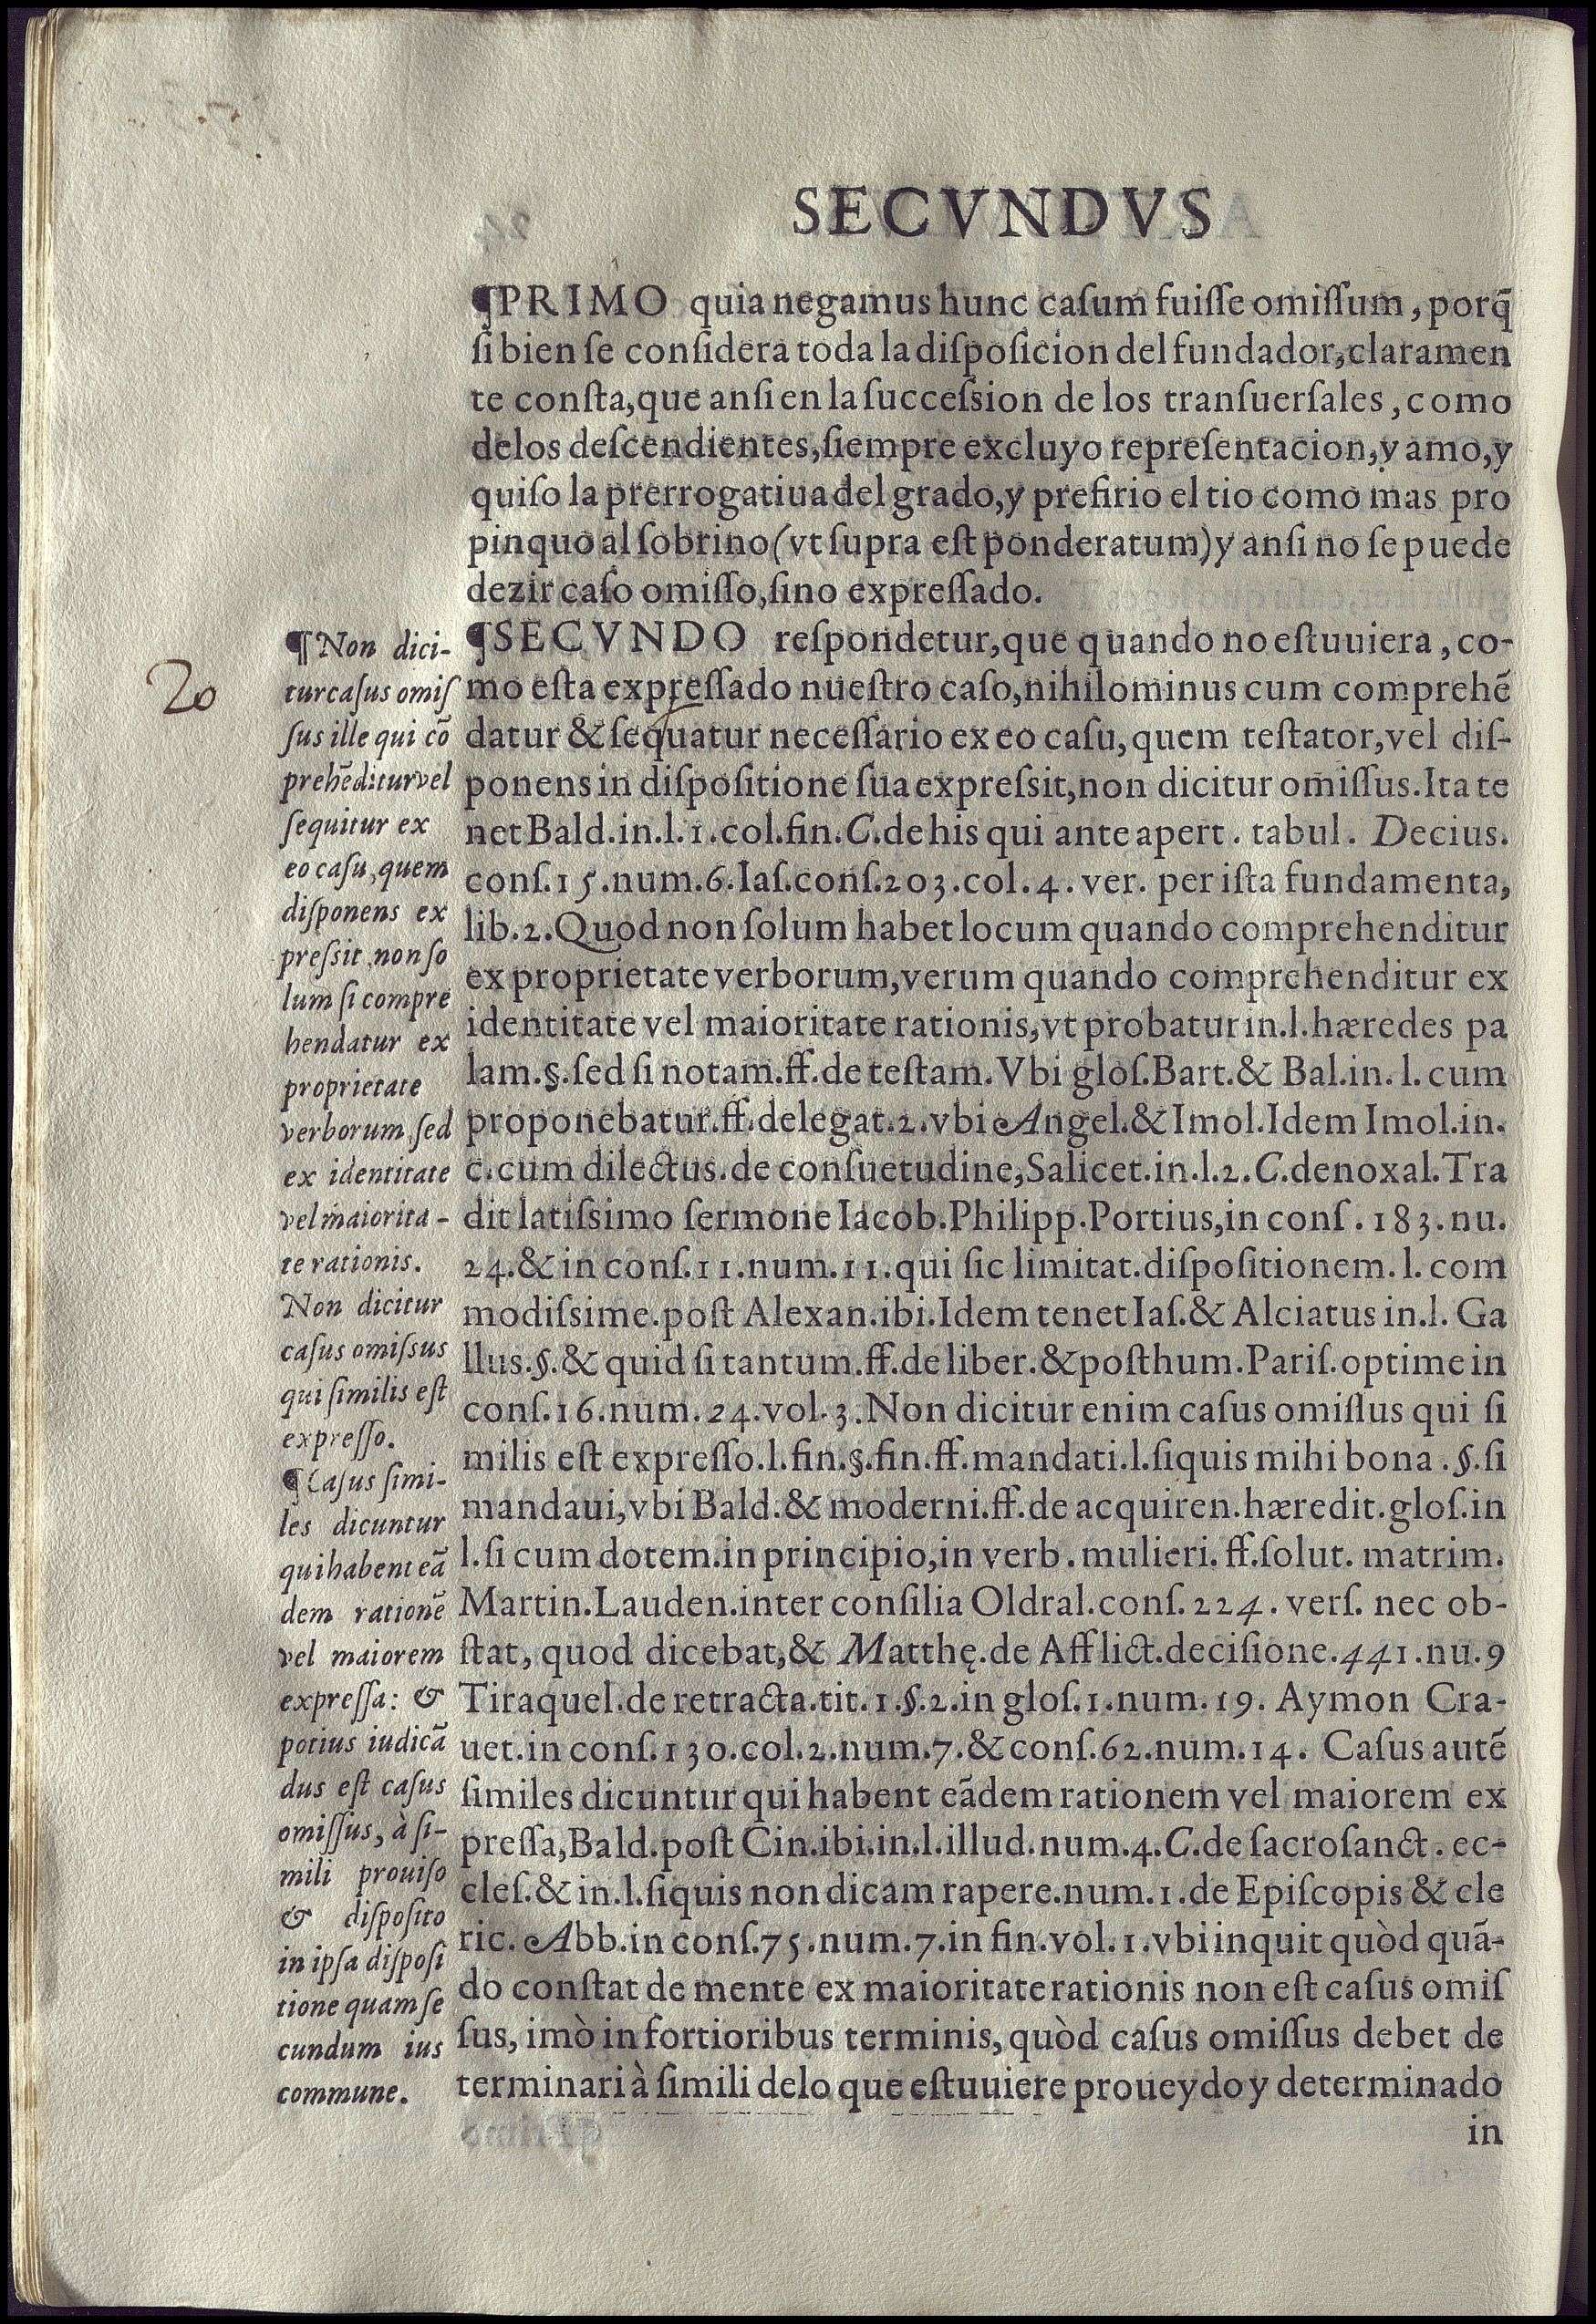 SECVNDVS
¶PRIMO quia negamus hunc caſum fuiſſe omiſſum, porq̃
ſi bien ſe conſidera toda la diſpoſicion del fundador, claramen
te conſta, que anſi en la ſucceſsion de los tranſuerſales, como
delos deſcendientes, ſiempre excluyo repreſentacion, y amo, y
quiſo la prerrogatiua del grado, y prefirio el tio como mas pro
pinquo al ſobrino (vt ſupra eſt ponderatum) y anſi no ſe puede
dezir caſo omiſſo, ſino expreſſado.
¶SECVNDO reſpondetur, que quando no eſtuuiera, co-
mo eſta expreſſado nueſtro caſo, nihilominus cum comprehẽ
datur & ſequatur neceſſario ex eo caſu, quem teſtator, vel diſ-
ponens in diſpoſitione ſua expreſsit, non dicitur omiſſus. Ita te
net Bald. in. l. 1. col. fin. C. de his qui ante apert. tabul. Decius.
conſ. 15. num. 6. Iaſ. conſ. 203. col. 4. ver. per iſta fundamenta,
lib. 2. Quod non ſolum habet locum quando comprehenditur
ex proprietate verborum, verum quando comprehenditur ex
identitate vel maioritate rationis, vt probatur in. l. hæredes pa
lam. §. ſed ſi notam. ff. de teſtam. Vbi gloſ. Bart. & Bal. in. l. cum
proponebatur. ff. de legat. 2. vbi Angel. & Imol. Idem Imol. in.
c. cum dilectus. de conſuetudine, Salicet. in. l. 2. C. de noxal. Tra
dit latiſsimo ſermone Iacob. Philipp. Portius, in conſ. 183. nu.
24. & in conſ. 11. num. 11. qui ſic limitat. diſpoſitionem. l. com
modiſsime. poſt Alexan. ibi. Idem tenet Iaſ. & Alciatus in. l. Ga
llus. §. & quid ſi tantum. ff. de liber. & poſthum. Pariſ. optime in
conſ. 16. num. 24. vol. 3. Non dicitur enim caſus omiſſus qui ſi
milis eſt expreſſo. l. fin. §. fin. ff. mandati. l. ſiquis mihi bona. §. ſi
mandaui, vbi Bald. & moderni. ff. de acquiren. hæredit. gloſ. in
l. ſi cum dotem. in principio, in verb. mulieri. ff. ſolut. matrim.
Martin. Lauden. inter conſilia Oldral. conſ. 224. verſ. nec ob-
ſtat, quod dicebat, & Matthę. de Afflict. deciſione. 441. nu. 9
Tiraquel. de retracta. tit. 1. §. 2. in gloſ. 1. num. 19. Aymon Cra-
uet. in conſ. 130. col. 2. num. 7. & conſ. 62. num. 14. Caſus autẽ
ſimiles dicuntur qui habent eãdem rationem vel maiorem ex
preſſa, Bald. poſt Cin. ibi. in. l. illud. num. 4. C. de ſacroſanct. ec-
cleſ. & in. l. ſiquis non dicam rapere. num. 1. de Epiſcopis & cle
ric. Abb. in conſ. 75. num. 7. in fin. vol. 1. vbi inquit quòd quã-
do conſtat de mente ex maioritate rationis non eſt caſus omiſ
ſus, imò in fortioribus terminis, quòd caſus omiſſus debet de
terminari à ſimili delo que eſtuuiere proueydo y determinado
in
20
¶Non dici-
tur caſus omiſ
ſus ille qui cõ
prehẽditur vel
ſequitur ex
eo caſu, quem
diſponens ex
preſsit, non ſo
lum ſi compre
hendatur ex
proprietate
verborum, ſed
ex identitate
vel maiorita-
te rationis.
Non dicitur
caſus omiſsus
qui ſimilis eſt
expreſſo.
¶Caſus ſimi-
les dicuntur
qui habent eã
dem rationẽ
vel maiorem
expreſſa: &
potius iudicã
dus eſt caſus
omiſſus, à ſi-
mili prouiſo
& diſpoſito
in ipſa diſpoſi
tione quam ſe
cundum ius
commune.